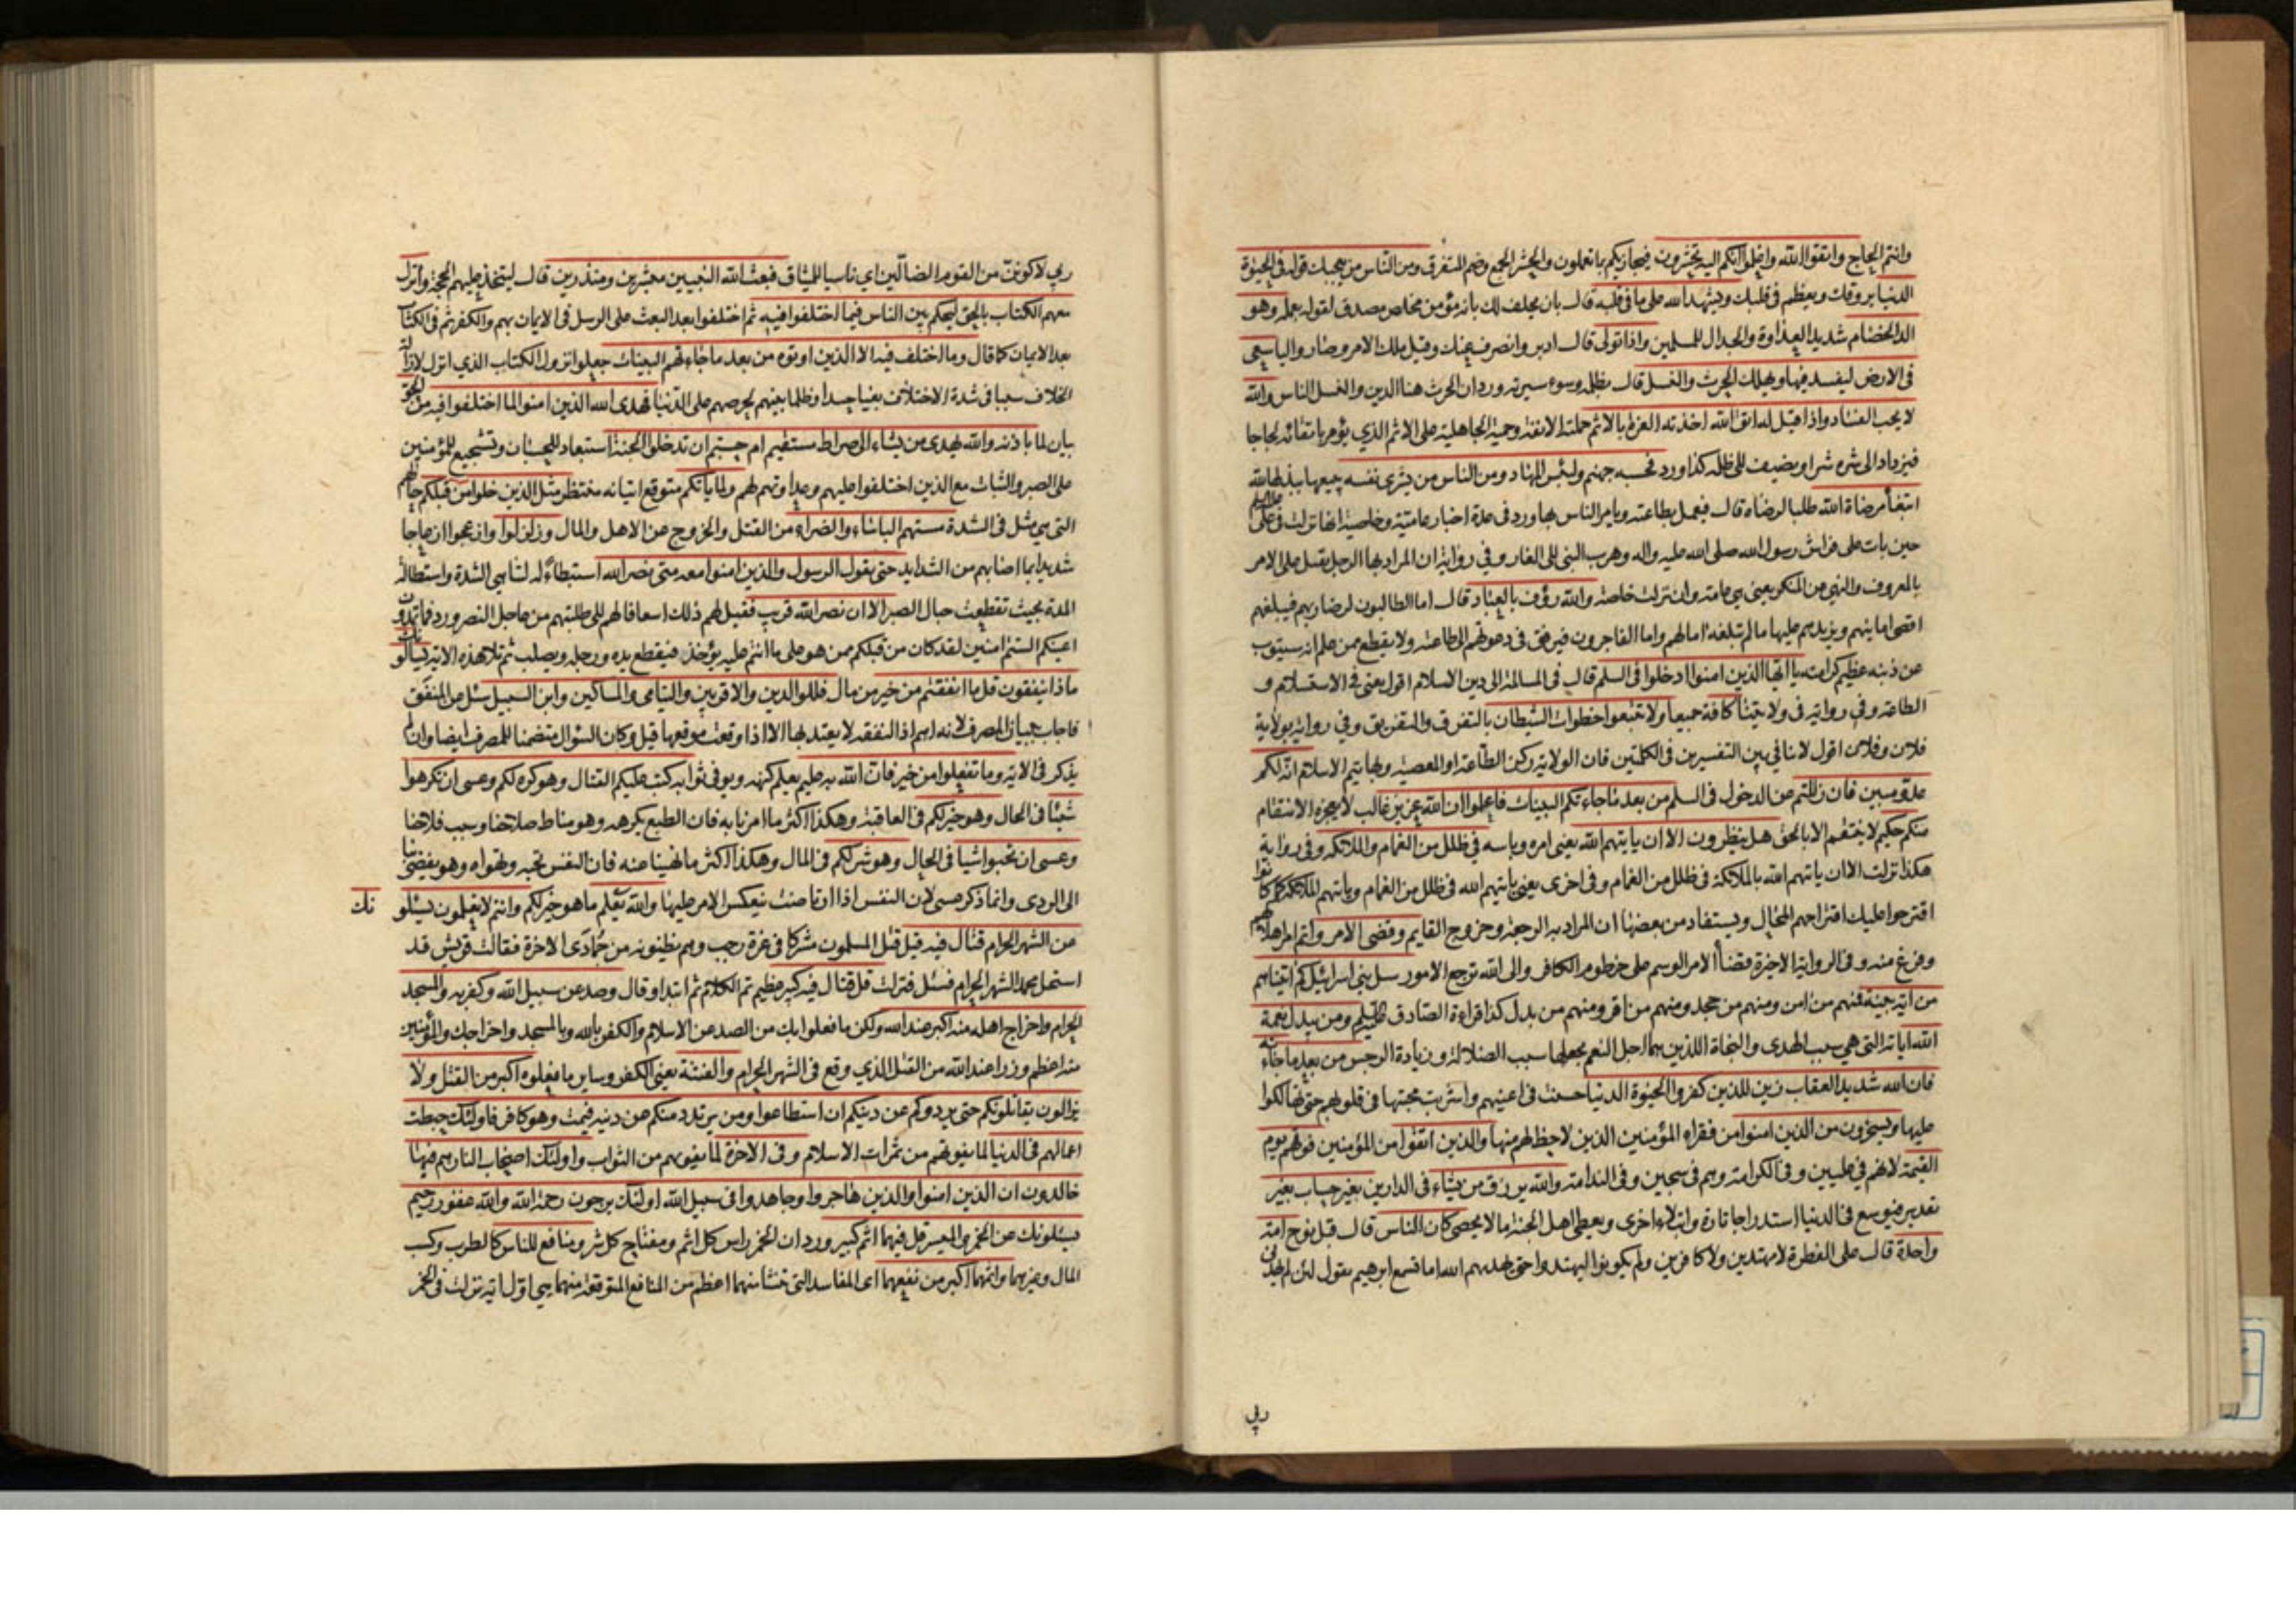 وانتم الحاج واتقوا الله واعلموا انكم اليه تحشرون فيجازيكم بما تعملون والحشر الجمع وضم المتفرق ومن الناس من يعجبك قوله في الحيوة
الدنيا يروقك ويعظم في قلبك ويشهد الله على ما في قلبه قال بان يحلف لك بانه مؤمن مخلص مصدق لقوله بعمله وهو
الد الخصام شديد العداوة والجدال للمسلمين واذا تولى قال ادبر وانصرف عنك وقيل ملك الامر وصار واليا سعى
في الارض ليفسد فيها ويهلك الحرث والنسل قال بظلمه وسوء سيرته ورد ان الحرث هنا الدين والنسل الناس والله
لا يحب الفساد واذا قيل له اتق الله اخذته العزة بالاثم حملته الانفة وحمية الجاهلية على الاثم الذي يؤمر باتقائه لجاجا
فيزداد الى شره شرا ويضيف الى ظلمه كذا ورد فحسبه جهنم ولبئس المهاد ومن الناس من يشري نفسه يبيعها ببذلها لله
ابتغاء مرضاة الله طلبا لرضاه قال فيعمل بطاعته ويامر الناس بها ورد في عدة اخبار عامية وخاصية انها نزلت في علي
حين بات على فراش رسول الله صلى الله عليه واله وهرب النبي الى الغار وفي رواية ان المراد بها الرجل يقتل على الامر
بالمعروف والنهي عن المنكر يعني هي عامة وان نزلت خاصة والله رؤف بالعباد قال اما الطالبون لرضا ربهم فيبلغهم
اقصى امانيهم ويزيدهم عليها ما لم تبلغه امالهم واما الفاجرون فيرفق في دعوتهم الى طاعته ولا يقطع ممن علم انه سيتوب
عن ذنبه عظيم كرامته يا ايها الذين امنوا ادخلوا في السلم قال في المسالمة الى دين الاسلام اقول يعني في الاستسلام و
الطاعة وفي رواية في ولايتنا كافة جميعا ولا تتبعوا خطوات الشيطان بالتفرق والتفريق وفي رواية بولاية
فلان وفلان اقول لا تنافي بين التفسيرين في الكلمتين فان الولاية ركن الطاعة والمعصية وبها يتم الاسلام انه لكم
عدو مبين فان زللتم عن الدخول في السلم من بعد ما جاءتكم البينات فاعلموا ان الله عزيز غالب لا يعجزه الانتقام
منكم حكيم لا ينتقم الا بالحق هل ينظرون الا ان ياتيهم الله يعني امره وباسه في ظلل من الغمام والملائكة وفي رواية
هكذا نزلت الا ان ياتيهم الله بالملائكة في ظلل من الغمام وفي اخرى يعني ياتيهم الله في ظلل من الغمام وياتيهم الملائكة كما كانوا
اقترحوا عليك اقتراحهم المحال ويستفاد من بعضها ان المراد به الرجعة وخروج القايم وقضي الامر واتم امر هلاكهم
وفرغ منه وفي الرواية الاخيرة قضاء الامر الوسم على خرطوم الكافر والى الله ترجع الامور سل بني اسرائيل كم اتيناهم
من اية بينة فمنهم من امن ومنهم من جحد ومنهم من اقر ومنهم من بدل كذا قراءة الصادق ومن يبدل نعمة
الله اياته التي هي سبب الهدى والنجاة اللذين هما اجل النعم بجعلها سبب الضلالة وزيادة الرجس من بعد ما جاءته
فان الله شديد العقاب زين للذين كفروا الحيوة الدنيا حسنت في اعينهم واشربت محبتها في قلوبهم حتى تهالكوا
عليها ويسخرون من الذين امنوا من فقراء المؤمنين الذين لا حظ لهم منها والذين اتقوا من المؤمنين فوقهم يوم
القيمة لانهم في عليين وفي الكرامة وهم في سجين وفي الندامة والله يرزق من يشاء في الدارين بغير حساب بغير
تقدير فيوسع في الدنيا استدراجا تارة وابتلاء اخرى ويعطي اهل الجنة ما لا يحصى كان الناس قال قبل نوح امة
واحدة قال على الفطرة لا مهتدين ولا كافرين ولم يكونوا ليهتدوا حتى يهديهم الله اما تسمع ابرهيم يقول لئن لم يهدني
ربي
ربي لاكونن من القوم الضالين اي ناسيا للميثاق فبعث الله النبيين مبشرين ومنذرين قال ليتخذ عليهم الحجة وانزل
معهم الكتاب بالحق ليحكم بين الناس فيما اختلفوا فيه ثم اختلفوا بعد البعث على الرسل في الايمان بهم والكفر ثم في الكتاب
بعد الايمان كما قال وما اختلف فيه الا الذين اوتوه من بعد ما جاءتهم البينات جعلوا نزول الكتاب الذي انزل لازالة
الخلاف سببا في شدة الاختلاف بغيا حسدا وظلما بينهم لحرصهم على الدنيا فهدى الله الذين امنوا لما اختلفوا فيه من الحق
بيان لما باذنه والله يهدي من يشاء الى صراط مستقيم ام حسبتم ان تدخلوا الجنة استبعاد للحسبان وتشجيع للمؤمنين
على الصبر والثبات مع الذين اختلفوا عليهم وعداوتهم لهم ولما ياتكم متوقع اتيانه منتظر مثل الذين خلوا من قبلكم حالهم
التي هي مثل في الشدة مستهم الباساء والضراء من القتل والخروج عن الاهل والمال وزلزلوا وازعجوا ازعاجا
شديدا بما اصابهم من الشدايد حتى يقول الرسول والذين امنوا معه متى نصر الله استبطاء له لتناهي الشدة واستطالة
المدة بحيث تقطعت حبال الصبر الا ان نصر الله قريب فقيل لهم ذلك اسعافا لهم الى طلبتهم من عاجل النصر ورد فما تمدون
اعينكم الستم امنين لقد كان من قبلكم ممن هو على ما انتم عليه يؤخذ فيقطع يده ورجله ويصلب ثم تلا هذه الاية يسالونك
ماذا ينفقون قل ما انفقتم من خير من مال فللوالدين والاقربين واليتامى والمساكين وابن السبيل سئل عن المنفق
فاجاب ببيان المصرف لانه اهم اذ النفقة لا يعتد بها الا اذا وقعت موقعها قيل وكان السؤال متضمنا للمصرف ايضا وان لم
يذكر في الاية وما تفعلوا من خير فان الله به عليم يعلم كنهه ويوفي ثوابه كتب عليكم القتال وهو كره لكم وعسى ان تكرهوا
شيئا في الحال وهو خير لكم في العاقبة وهكذا اكثر ما امرنا به فان الطبع يكرهه وهو مناط صلاحنا وسبب فلاحنا
وعسى ان تحبوا شيئا في الحال وهو شر لكم في المال وهكذا اكثر ما نهينا عنه فان النفس تحبه وتهواه وهو يفضي بنا
الى الردى وانما ذكر عسى لان النفس اذا ارتاضت ينعكس الامر عليها والله يعلم ما هو خير لكم وانتم لا تعلمون يسئلو نك
عن الشهر الحرام قتال فيه قيل قتل المسلمون مشركا في غرة رجب وهم يظنونه من جمادى الاخرة فقالت قريش قد
استحل محمد الشهر الحرام فسئل فنزلت قل قتال فيه كبير عظيم تم الكلام ثم ابتدا وقال وصد عن سبيل الله وكفر به والمسجد
الحرام واخراج اهله منه اكبر عند الله ولكن ما فعلوا بك من الصد عن الاسلام والكفر بالله وبالمسجد واخراجك والمؤمنين
منه اعظم وزرا عند الله من القتل الذي وقع في الشهر الحرام والفتنة يعني الكفر وساير ما فعلوه اكبر من القتل ولا
يزالون يقاتلونكم حتى يردوكم عن دينكم ان استطاعوا ومن يرتدد منكم عن دينه فيمت وهو كافر فاولئك حبطت
اعمالهم في الدنيا لما يفوتهم من ثمرات الاسلام وفي الاخرة لما يفوتهم من الثواب واولئك اصحاب النار هم فيها
خالدون ان الذين امنوا والذين هاجروا وجاهدوا في سبيل الله اولئك يرجون رحمة الله والله غفور رحيم
يسئلونك عن الخمر والميسر قل فيهما اثم كبير ورد ان الخمر راس كل اثم ومفتاح كل شر ومنافع للناس كالطرب وكسب
المال وغيرهما واثمهما اكبر من نفعهما اي المفاسد التي تنشا منهما اعظم من المنافع المتوقعة منهما هي اول اية نزلت في الخمر